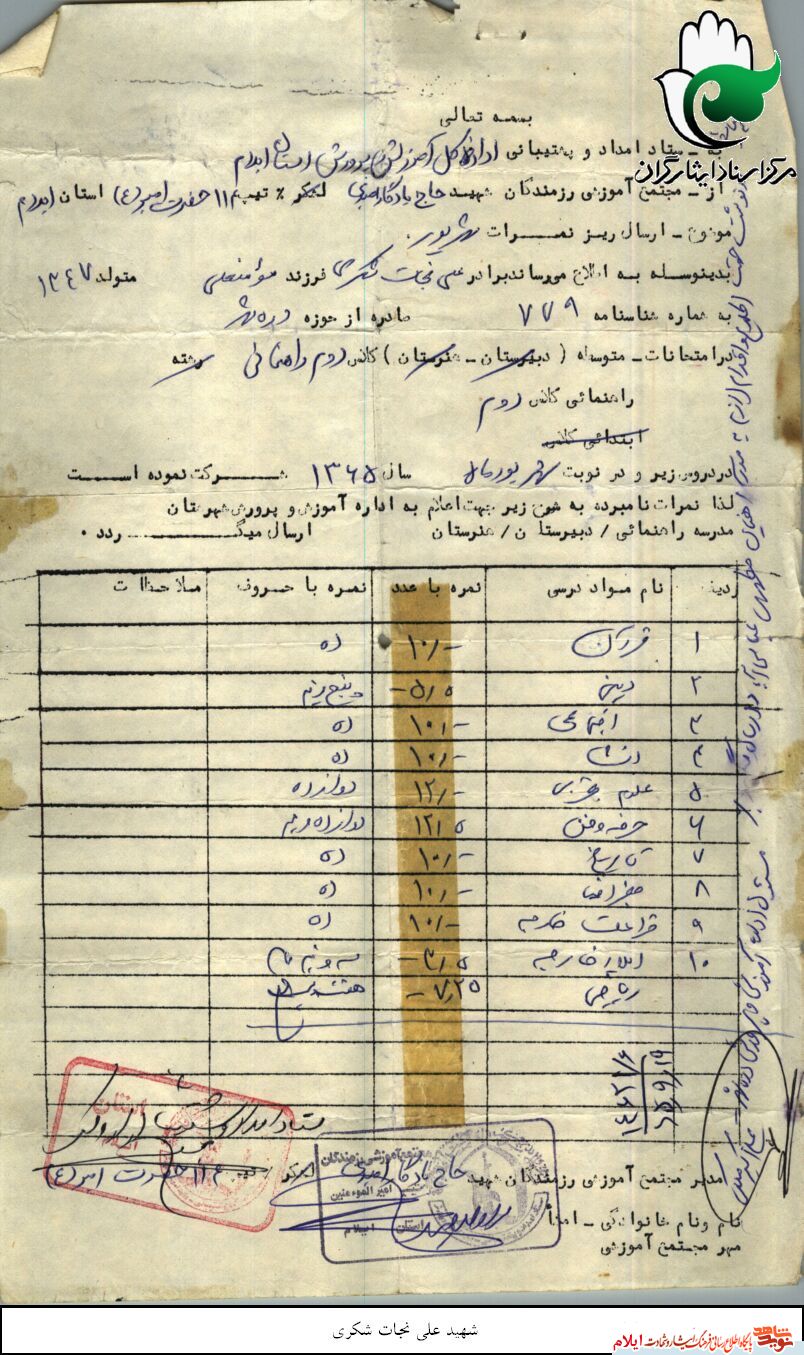 مرکز اسناد ایثارگران
بسمه تعالی
به - ستاد امداد و پشتیبانی اداره کل آموزش و پرورش استان ایلام
از - مجتمع آموزشی رزمندگان شهید حاج یادگار امیدی لشکر % تیپ ۱۱ حضرت امیر (ع) استان ایلام
موضوع - ارسال ریز نمرات شهریور
بدینوسیله به اطلاع میرساند برادر علی نجات شکری فرزند مؤمنعلی متولد ۱۳۴۷
به شماره شناسنامه ۷۷۹ صادره از حوزه دره شهر
در امتحانات - متوسطه ( دبیرستان - هنرستان ) کلاس دوم راهنمائی رشته
راهنمائی کلاس دوم
ابتدائی کلاس
در دروس زیر و در نوبت شهریور ماه سال ۱۳۶۵ شرکت نموده است
لذا نمرات نامبرده به شرح زیر جهت اعلام به اداره آموزش و پرورش شهرستان
مدرسه راهنمائی / دبیرستان / هنرستان ارسال میگردد .
ردیف نام مواد درسی نمره با عدد نمره با حروف ملاحظات
۱ قرآن ۱۰/- ده
۲ دینی ۵/۵ پنج و نیم
۳ اجتماعی ۱۰/- ده
۴ انشاء ۱۰/- ده
۵ علوم تجربی ۱۲/- دوازده
۶ حرفه و فن ۱۲/۵ دوازده و نیم
۷ تاریخ ۱۰/- ده
۸ جغرافیا ۱۰/- ده
۹ قرائت خارجه ۱۰/- ده
۱۰ املاء خارجه ۳/۵ سه و نیم
ریاضی ۷/۲۵
مدیر مجتمع آموزشی رزمندگان شهید حاج یادگار امیدی لشکر تیپ ۱۱ حضرت امیر (ع)
نام و نام خانوادگی - امضاء
مهر مجتمع آموزشی
مجتمع آموزشی رزمندگان
امیرالمومنین
استان ایلام
شهید علی نجات شکری
نوید شاهد
پایگاه اطلاع رسانی فرهنگ ایثار و شهادت ایلام